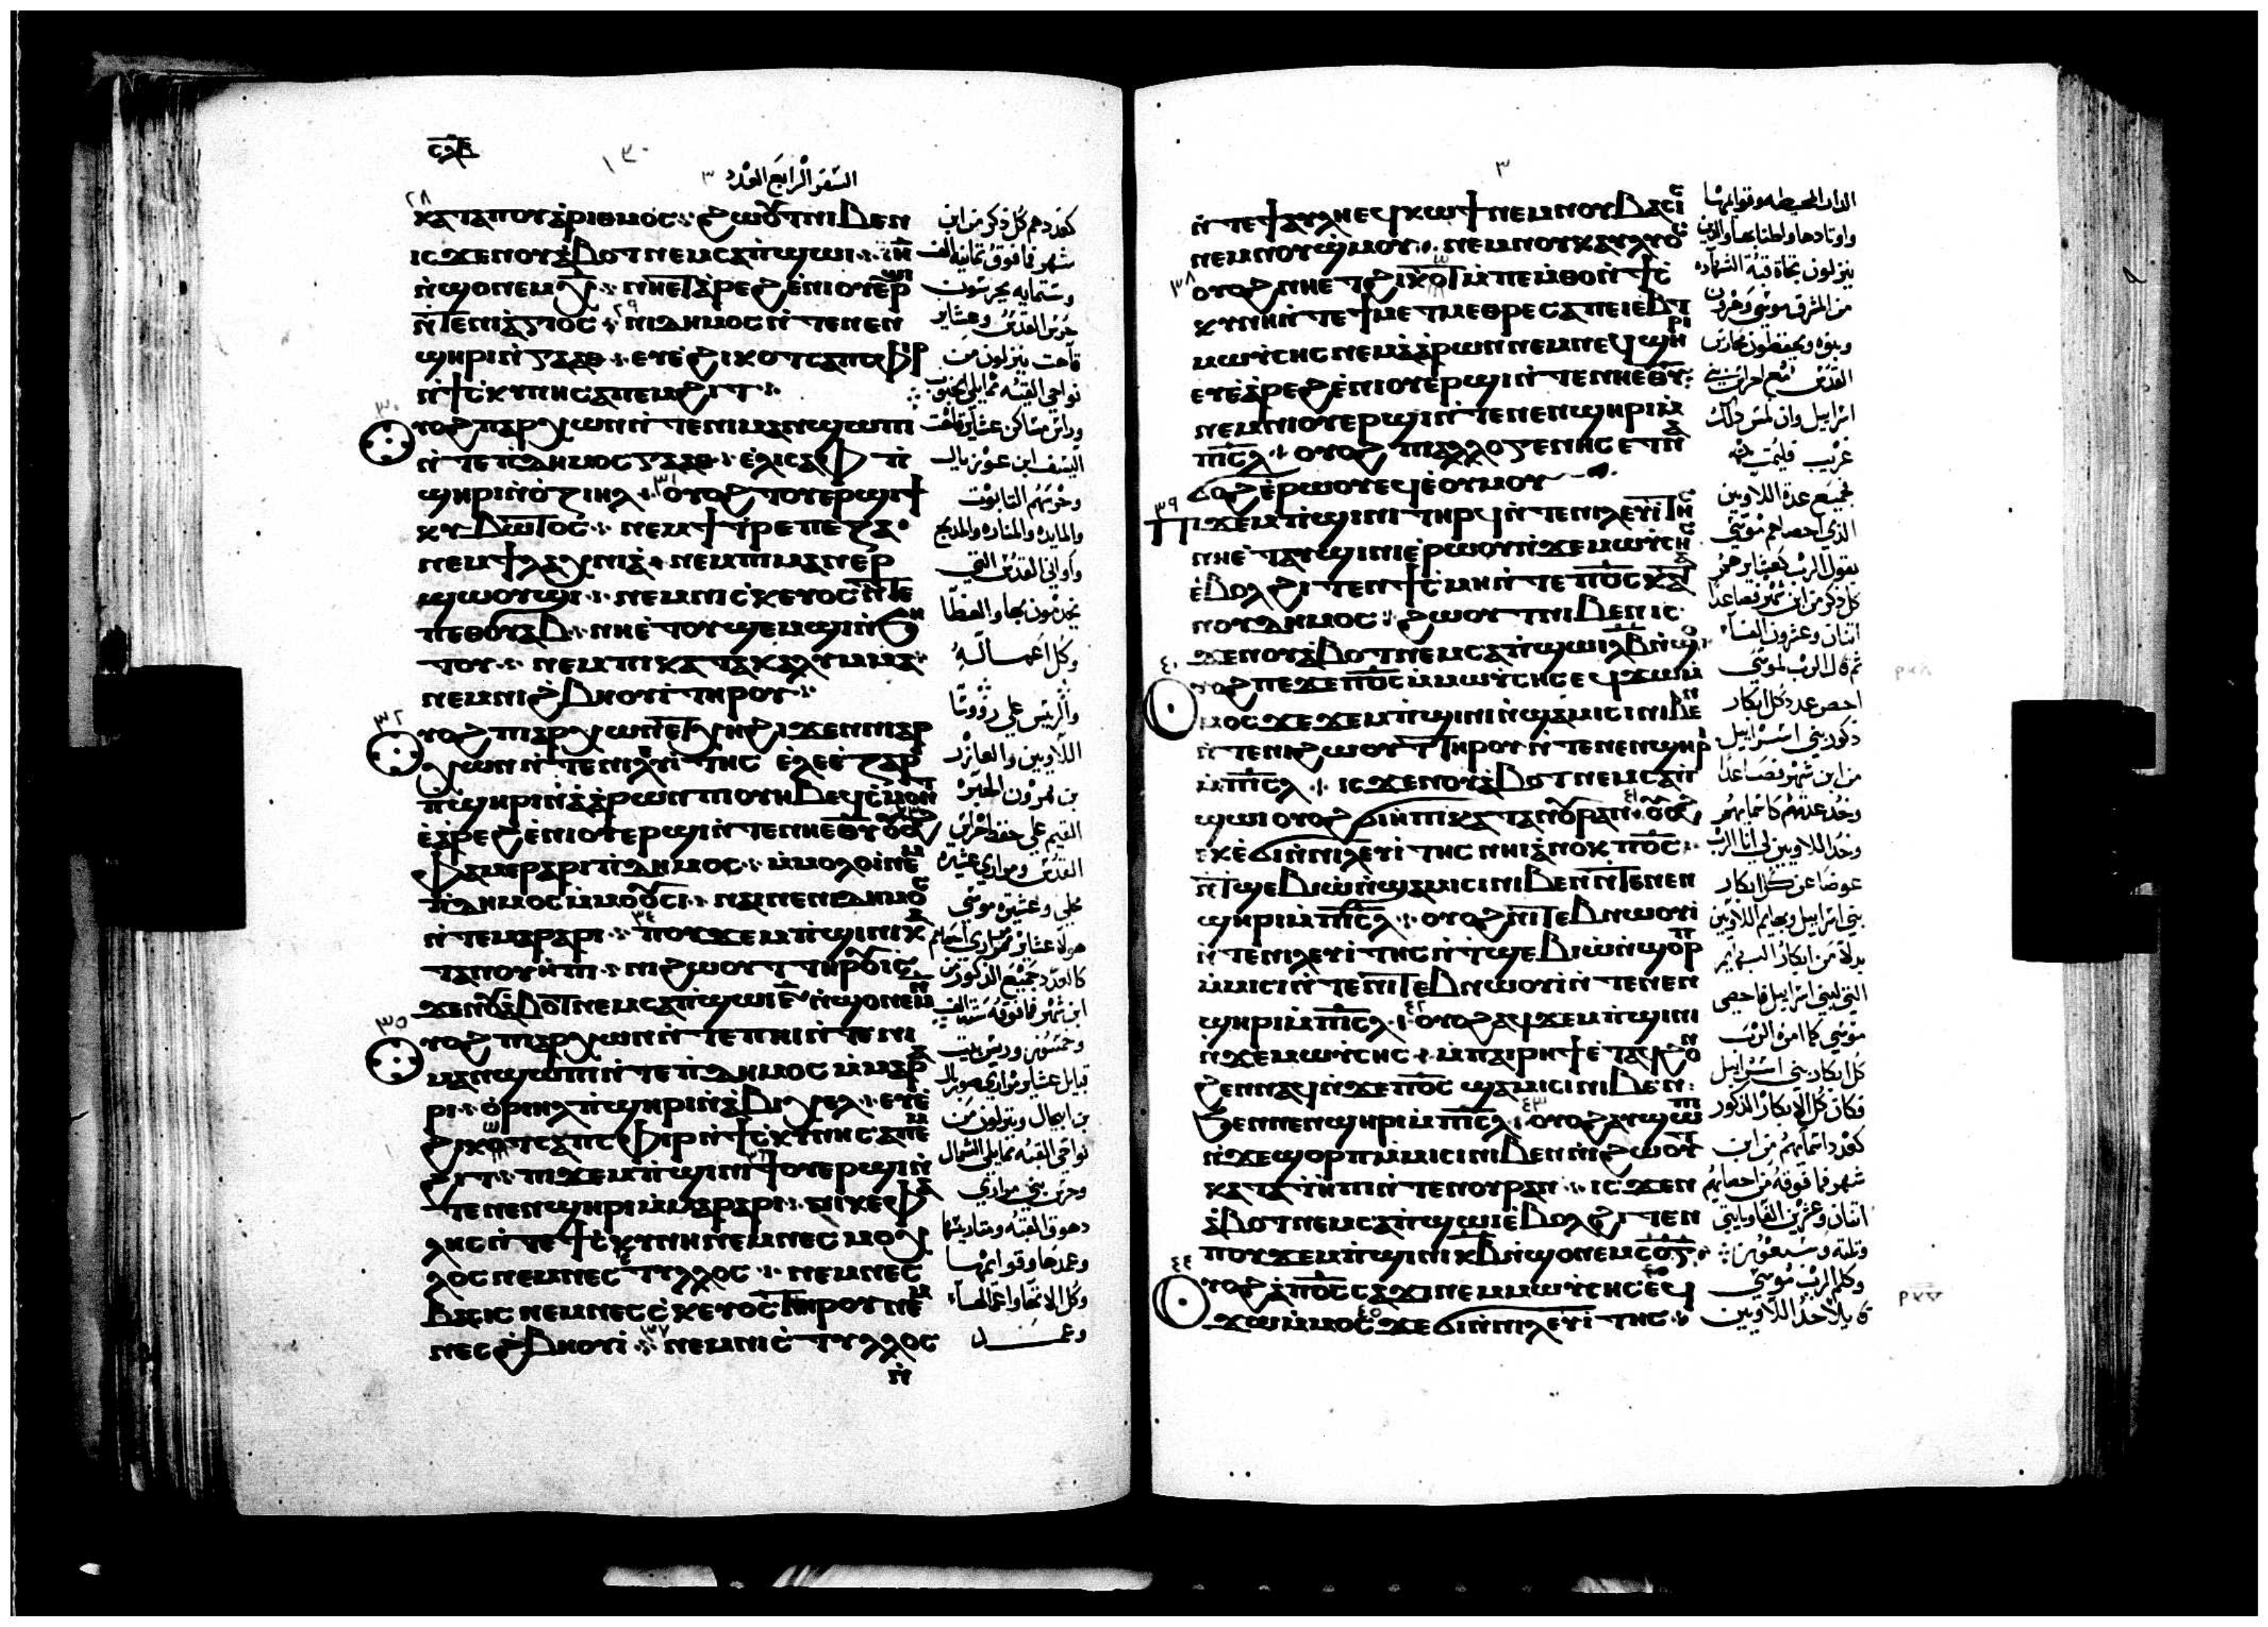 ⲥⲗⲃ
١٣٠
السفر الرابع العدد ٣
٢٨
ⲕⲁⲧⲁⲡⲟⲩⲁⲣⲓⲑⲙⲟⲥ ϩⲱⲟⲩⲧ ⲛⲓⲃⲉⲛ
ⲓⲥϫⲉⲛⲟⲩⲁⲃⲟⲧ ⲛⲉⲙⲥⲁⲡϣⲱⲓ
ⲛϣⲟ ⲛⲉⲙ ⲭ ⲛⲏⲉⲧⲁⲣⲉϩ ⲉⲛⲓⲟⲩⲉⲣϣⲓ
ⲛⲧⲉⲛⲓⲁⲅⲓⲟⲥ ⲛⲓⲇⲏⲙⲟⲥ ⲛⲧⲉⲛⲉⲛ
ϣⲏⲣⲓ ⲛⲕⲁⲁⲑ ⲉⲩⲉϩⲓⲕⲟⲧ ⲥⲁⲡⲥⲫⲓⲣ
ⲛϯⲥⲕⲩⲛⲏ ⲥⲁⲡⲉⲙϩⲓⲧ
٣٠
ⲟⲩⲟϩ ⲡⲁⲣⲭⲱⲛ ⲛⲧⲉⲛⲓⲙⲁⲛϣⲱⲡⲓ
ⲛⲧⲉⲡⲇⲏⲙⲟⲥ ⲕⲁⲁⲑ ⲉⲗⲓⲥⲁⲫ ⲡ
ϣⲏⲣⲓ ⲛⲟⲍⲓⲏⲗ ⲟⲩⲟϩ ⲧⲟⲩⲉⲣϣⲓ ϯ
ⲕⲩⲃⲱⲧⲟⲥ ⲛⲉⲙ ϯⲧⲣⲉⲡⲉⲍⲁ
ⲛⲉⲙ ϯⲗⲩⲭⲛⲓⲁ ⲛⲉⲙ ⲡⲓⲙⲁⲛⲉⲣ
ϣⲱⲟⲩϣⲓ ⲛⲉⲙ ⲛⲓⲥⲕⲉⲩⲟⲥ ⲛⲧⲉ
ⲡⲉⲑⲟⲩⲁⲃ ⲛⲏⲉⲧⲟⲩϣⲉⲙϣⲓ ⲛϧⲏ
ⲧⲟⲩ ⲛⲉⲙ ⲡⲓⲕⲁⲧⲁⲕⲁⲗⲩⲙⲙⲁ
ⲛⲉⲙ ⲛⲓϩⲃⲏⲟⲩⲓ ⲧⲏⲣⲟⲩ
٣٢
ⲟⲩⲟϩ ⲡⲁⲣⲭⲱⲛ ⲉⲧⲭⲏ ϩⲓϫⲉⲛ ⲛⲓⲁⲣ
ⲭⲱⲛ ⲛⲧⲉⲛⲓⲗⲉⲩⲓⲧⲏⲥ ⲉⲗⲉⲉⲍⲁⲣ
ⲡϣⲏⲣⲓ ⲛⲁⲁⲣⲱⲛ ⲡⲓⲟⲩⲏⲃ
ⲉⲁⲣⲉϩ ⲉⲛⲓⲟⲩⲉⲣϣⲓ ⲛⲧⲉⲛⲏⲉⲑⲩ
ⲫⲁⲙⲉⲣⲁⲣⲓ ⲡⲇⲏⲙⲟⲥ ⲙⲙⲟⲗⲟⲓ ⲛⲉⲙ
ⲡⲇⲏⲙⲟⲥ ⲙⲙⲟⲩⲥⲓ ⲛⲁⲓ ⲛⲉ ⲛⲓⲇⲏⲙⲟⲥ
ⲛⲧⲉⲙⲁⲣⲁⲣⲓ ⲡⲟⲩϫⲉⲙⲡϣⲓⲛⲓ ⲕⲁ
ⲧⲁⲡⲟⲩⲏⲡⲓ ⲛⲓϩⲱⲟⲩⲧ ⲧⲏⲣⲟⲩ ⲓⲥ
ϫⲉⲛⲟⲩⲁⲃⲟⲧ ⲛⲉⲙⲥⲁⲡϣⲱⲓ
٣٥
ⲟⲩⲟϩ ⲡⲁⲣⲭⲱⲛ ⲛⲧⲉⲡⲏⲓ ⲛⲧⲉⲛⲓ
ⲙⲁⲛϣⲱⲡⲓ ⲛⲧⲉⲡⲇⲏⲙⲟⲥ ⲙⲙⲁⲣⲁ
ⲣⲓ ⲟⲣⲓⲏⲗ ⲡϣⲏⲣⲓ ⲛⲁⲃⲓⲭⲉⲁ ⲉⲩⲉ
ϩⲓⲕⲟⲧ ⲥⲁⲡⲥⲫⲓⲣ ⲛϯⲥⲕⲩⲛⲏ ⲥⲁⲡⲉⲙ
ϩⲓⲧ ⲡϫⲉⲙⲡϣⲓⲛⲓ ϯⲟⲩⲉⲣϣⲓ ⲛ
ⲧⲉⲛⲉⲛϣⲏⲣⲓ ⲙⲙⲁⲣⲁⲣⲓ ⲛⲓⲕⲉⲫⲁ
ⲗⲓⲥ ⲛⲧⲉϯⲥⲕⲩⲛⲏ ⲛⲉⲙ ⲛⲉⲥⲙⲟⲭ
ⲗⲟⲥ ⲛⲉⲙ ⲛⲉⲥⲥⲧⲩⲗⲗⲟⲥ ⲛⲉⲙ ⲛⲉⲥ
ⲃⲁⲥⲓⲥ ⲛⲉⲙ ⲛⲉⲥⲥⲕⲉⲩⲟⲥ ⲧⲏⲣⲟⲩ ⲛⲉⲙ
ⲛⲉⲥϩⲃⲏⲟⲩⲓ ⲛⲉⲙ ⲛⲓⲥⲧⲩⲗⲗⲟⲥ
ⲛ
كعددهم كل ذكر من ابن
شهر فما فوق ثمانية الف
وستمايه يحرسون
حرس القدس وعشاير
قاهت ينزلون من
نواحي القبه مما يلي الجنوب
وراس مساكن عشاير قاهت
اليصف ابن عوزيال
وحرسهم التابوت
والمايده والمناره والمدبح
واواني القدس التي
يخدمون بها والغطا
وكل اعماله
والريس علي رووسا
اللاويين العازر
بن هرون الحبر
القيم علي حفظ حراس
القدس ومراري عشيره
محلي وعشيره موسي
هولا عشاير مراري احصاهم
كالعدد جميع الذكور من
ابن شهر فما فوقه ستة الف
وخمسون وريس بيت
قبايل عشاير مراري صوريال
بن ابيحال وينزلون من
نواحي القبه مما يلي الشمال
وحرس بني مراري
وعمدها وقوايمها
وكل الاتها واعمالها
وعمد
٣
ⲛⲧⲉϯⲁⲩⲗⲏ ⲉⲧⲕⲱϯ ⲛⲉⲙ ⲛⲟⲩⲃⲁⲥⲓⲥ
ⲛⲉⲙ ⲛⲟⲩϣⲙⲟⲩ ⲛⲉⲙ ⲛⲟⲩⲕⲁⲩⲗⲟⲥ
٣٨
ⲟⲩⲟϩ ⲛⲏⲉⲧϩⲓⲕⲟⲧ ⲙⲡⲉⲙⲑⲟ ⲛϯⲥ
ⲕⲩⲛⲏ ⲛⲧⲉϯⲙⲉⲧⲙⲉⲑⲣⲉ ⲥⲁⲡⲉⲓⲉⲃⲧ
ⲙⲱⲩⲥⲏⲥ ⲛⲉⲙ ⲁⲁⲣⲱⲛ ⲛⲉⲙ ⲛⲉϥϣⲏⲣⲓ
ⲉⲩⲉⲁⲣⲉϩ ⲉⲛⲓⲟⲩⲉⲣϣⲓ ⲛⲧⲉⲛⲏⲉⲑⲩ
ⲛⲉⲙ ⲛⲓⲟⲩⲉⲣϣⲓ ⲛⲧⲉⲛⲉⲛϣⲏⲣⲓ ⲙ
ⲡⲓⲥⲗ ⲟⲩⲟϩ ⲡⲓⲁⲗⲗⲟⲅⲉⲛⲏⲥ ⲉⲧⲛⲁ
ϭⲟϩ ⲉⲣⲱⲟⲩ ⲉϥⲉⲙⲟⲩ
٣٩
ⲡϫⲉⲙⲡϣⲓⲛⲓ ⲧⲏⲣϥ ⲛⲧⲉⲛⲓⲗⲉⲩⲓⲧⲏⲥ
ⲛⲏⲉⲧⲁⲩϣⲓⲛⲓ ⲉⲣⲱⲟⲩ ⲛϫⲉⲙⲱⲩⲥⲏⲥ
ⲉⲃⲟⲗϩⲓⲧⲉⲛ ϯⲥⲙⲏ ⲛⲧⲉⲡⲟⲥ ⲕⲁⲧⲁ
ⲛⲟⲩⲇⲏⲙⲟⲥ ϩⲱⲟⲩⲧ ⲛⲓⲃⲉⲛ ⲓⲥ
ϫⲉⲛⲟⲩⲁⲃⲟⲧ ⲛⲉⲙⲥⲁⲡϣⲱⲓ ⲕⲃ ⲛϣⲟ
٤٠
ⲟⲩⲟϩ ⲡⲉϫⲉⲡⲟⲥ ⲙⲙⲱⲩⲥⲏⲥ ⲉϥϫⲱ ⲙ
ⲙⲟⲥ ϫⲉ ϫⲉⲙⲡϣⲓⲛⲓ ⲛϣⲁⲙⲓⲥⲓ ⲛⲓⲃⲉⲛ
ⲛⲧⲉⲛⲓϩⲱⲟⲩⲧ ⲧⲏⲣⲟⲩ ⲛⲧⲉⲛⲉⲛϣⲏⲣⲓ
ⲙⲡⲓⲥⲗ ⲓⲥϫⲉⲛⲟⲩⲁⲃⲟⲧ ⲛⲉⲙⲥⲁⲡ
ϣⲱⲓ ⲟⲩⲟϩ ϭⲓⲏⲡⲓ ⲕⲁⲧⲁⲛⲟⲩⲣⲁⲛ ⲟⲩⲟϩ
ⲉⲕⲉϭⲓ ⲛⲛⲓⲗⲉⲩⲓⲧⲏⲥ ⲛⲏⲓ ⲁⲛⲟⲕ ⲡⲟⲥ
ⲛⲧϣⲉⲃⲓⲱ ⲛϣⲁⲙⲓⲥⲓ ⲛⲓⲃⲉⲛ ⲛⲧⲉⲛⲉⲛ
ϣⲏⲣⲓ ⲙⲡⲓⲥⲗ ⲟⲩⲟϩ ⲛⲓⲧⲉⲃⲛⲱⲟⲩⲓ
ⲛⲧⲉⲛⲓⲗⲉⲩⲓⲧⲏⲥ ⲛⲧϣⲉⲃⲓⲱ ⲛϣⲟⲣⲡ
ⲙⲙⲓⲥⲓ ⲛⲧⲉⲛⲓⲧⲉⲃⲛⲱⲟⲩⲓ ⲛⲧⲉⲛⲉⲛ
ϣⲏⲣⲓ ⲙⲡⲓⲥⲗ ⲟⲩⲟϩ ⲁϥϫⲉⲙⲡϣⲓⲛⲓ
ⲛϫⲉⲙⲱⲩⲥⲏⲥ ⲙⲡⲁⲓⲣⲏϯ ⲉⲧⲁϥϩⲟⲛ
ϩⲉⲛ ⲛⲁϥ ⲛϫⲉⲡⲟⲥ ϣⲁⲙⲓⲥⲓ ⲛⲓⲃⲉⲛ
ϧⲉⲛ ⲛⲉⲛϣⲏⲣⲓ ⲙⲡⲓⲥⲗ ⲟⲩⲟϩ ⲁⲩϣⲱⲡⲓ
ⲛϫⲉϣⲟⲣⲡ ⲙⲙⲓⲥⲓ ⲛⲓⲃⲉⲛ ⲛⲛⲓϩⲱⲟⲩⲧ
ⲕⲁⲧⲁ ⲧⲏⲡⲓ ⲛⲧⲉⲛⲟⲩⲣⲁⲛ ⲓⲥϫⲉⲛ
ⲁⲃⲟⲧ ⲛⲉⲙⲥⲁⲡϣⲱⲓ ⲉⲃⲟⲗϩⲓⲧⲉⲛ
ⲡⲟⲩϫⲉⲙⲡϣⲓⲛⲓ ⲕⲃ ⲛϣⲟ ⲛⲉⲙ ⲥⲟⲅ
٤٤
ⲟⲩⲟϩ ⲁⲡⲟⲥ ⲥⲁϫⲓ ⲛⲉⲙ ⲙⲱⲩⲥⲏⲥ ⲉϥ
ϫⲱ ⲙⲙⲟⲥ ϫⲉ ϭⲓ ⲛⲛⲓⲗⲉⲩⲓⲧⲏⲥ
الدار المحيطه وقوايمها
واوتادها واطنابها والذين
ينزلون تجاة قبة الشهاده
من المشرق موسي وهرون
وبنوه ويحفظون محارس
القدس مع احراس بني
اسراييل وان لمس ذلك
غريب فليمت
فجميع عدة اللاويين
الذي احصاهم موسي
بقول الرب كعشايرهم
كل ذكر من ابن شهر فصاعدا
اثنان وعشرون الفا
ثم قال الرب لموسي
احص عدد كل ابكار
ذكور بني اسراييل
من ابن شهر فصاعدا
وخذ عدتهم كاسمايهم
وخذ اللاويين لي انا الرب
عوضا عن كل ابكار
بني اسراييل وبهايم اللاويين
بدلا من ابكار البهايم
التي لبني اسراييل فاحصي
موسي كما امره الرب
كل ابكار بني اسراييل
فكان كل الابكار الذكور
كعدد اسمايهم من ابن
شهر فما فوقه من احصايهم
اثنان وعشرين الفا ومايتي
وثلثه وسبعون
وكلم الرب موسي
قايلا خذ اللاويين